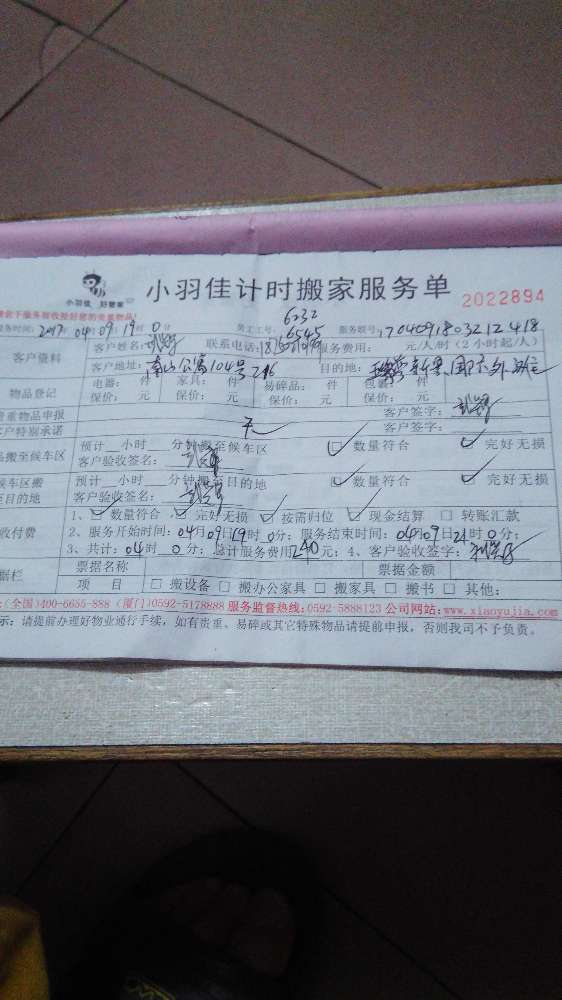 小羽佳 好管家
小羽佳计时搬家服务单
2022894
6232
务时间: 2017 04月09日19时0分 员工工号: 6545 服务联号: 170409180321 2418
客户资料 客户姓名: 联系电话: 服务费用: 元/人/时(2小时起/人)
客户地址: 南山公寓104号 216 目的地:
物品登记 电器: 件 家具: 件 易碎品: 件 包裹: 件
保价: 元 保价: 元 保价: 元 保价: 元
贵重物品申报 客户签字:
客户特别承诺 无
品搬至候车区 预计__小时__分钟搬至候车区 数量符合 完好无损
客户验收签名:
候车区搬至目的地 预计__小时__分钟搬至目的地 数量符合 完好无损
客户验收签名:
收付费 1、 数量符合 完好无损 按需归位 现金结算 转账汇款
2、服务开始时间: 04月09日19时0分; 服务结束时间: 04月09日21时0分;
3、共计: 04时0分; 总计服务费用240元; 4、客户验收签字:
据栏 票据名称 票据金额
项 目 搬设备 搬办公家具 搬家具 搬书 其他:
:(全国)400-6655-888 (厦门)0592-5178888 服务监督热线:0592-5888123 公司网站:www.xiaoyujia.com
示: 请提前办理好物业通行手续,如有贵重、易碎或其它特殊物品请提前申报,否则我司不予负责。